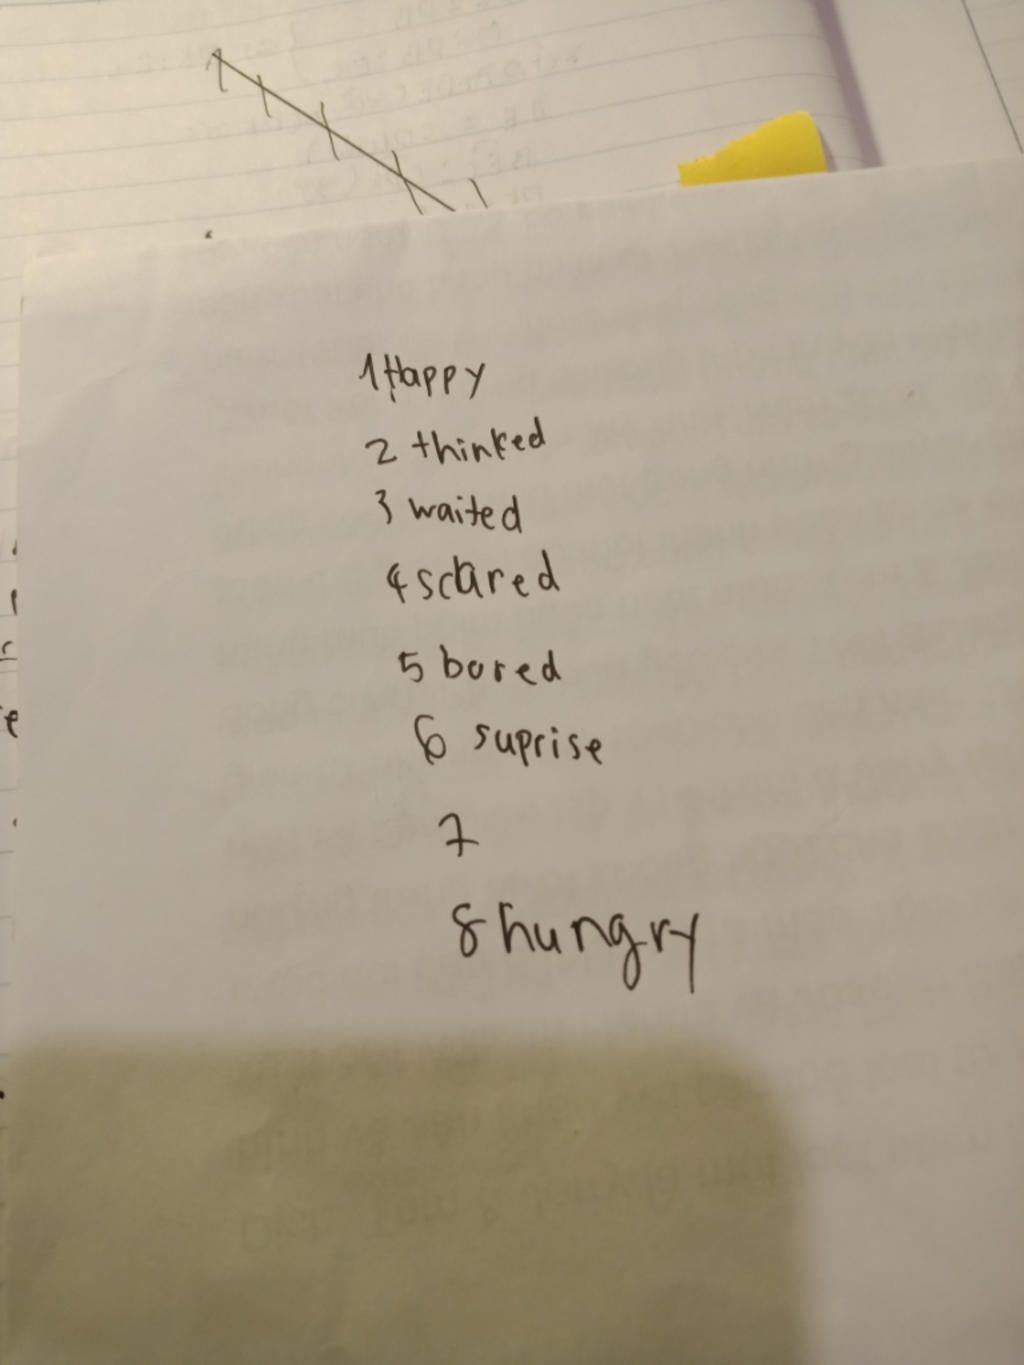 1 Happy
2 thinked
3 waited
4 scared
5 bored
6 suprise
7
8 hungry